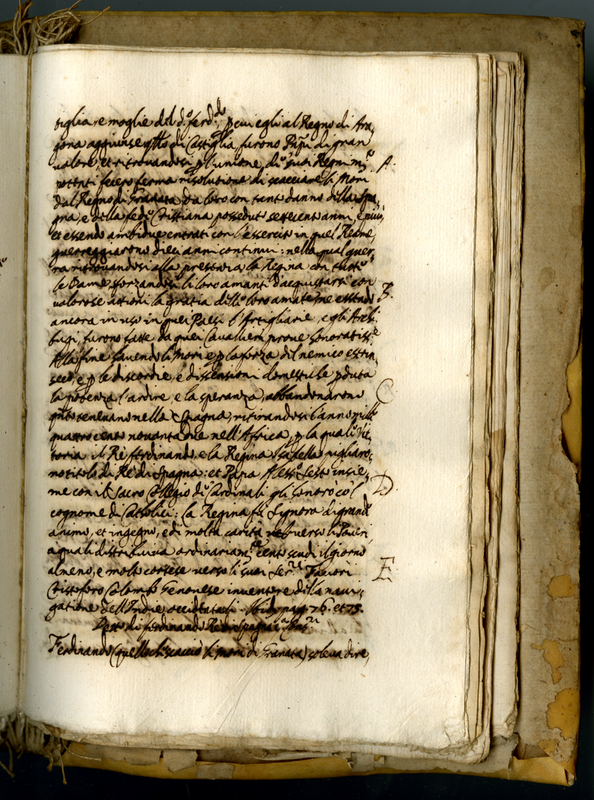 tiglia, e moglie del d.º ferd.do p cui egli al Regno di Ara,
gona aggiunse q̃llo di Castiglia, furono Prñpi di gran
valore et ritrovandosi p l'unione di q̃sti Regni m.to A.
potenti fecero ferma risolutione di scacciare li Mori
dal Regno di Granata da loro con tanto danno della Spa,
gna, e della fede Cristiana posseduto settecento anni, e più,
et essendo ambidue entrati con l'esercito in quel Regno,
guerreggiarono dieci anni continui: nella qual guer,
ra ritrovandosi alla presenza la Regina con tutte
le Dame sforzandosi li loro amanti d'acquistarsi con
valorose attioni la gratia delle loro amate, ne essendo B.
ancora in uso in quei Paesi l'Artigliarie, e gli Archi,
bugi, furono fatte da quei Cavallieri prove honoratiss.e
Alla fine havendo li Mori e p la forza del nemico
e p le discordie, e dissensioni domestiche p̃duta
la potenza l'ardire, e la speranza, abbandonarono C
q̃nto tenevano nella Spagna ritirandosi l'anno mille
quattrocento novanta due nell'Africa, p la qual Vit,
toria il Rè ferdinando, e la Regina Isabella pigliaro,
no titolo di Rè di Spagna: et Papa Aless.º Sesto insie,
me con il Sacro Collegio de Cardinali gli honorò col D
cognome di Cattolici: la Regina fu Signora di grand'
animo, et ingegno, e di molta carità verso li Poveri
a quali distribuiva ordinariam.te cento scudi il giorno
almeno, e molto cortese verso li suoi Ser.ri E
Cristoforo Colombo Genovese inventore della navi,
gatione dell'Indie occidentali. Ibid. pag. 76. et 78.
Detto di ferdinando Rè di Spagna
Ferdinando (quello che scacciò li mori di Granata) soleva dire,